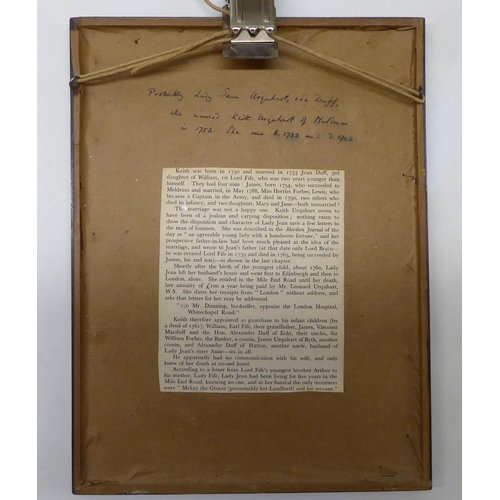 Probably Lady Jean Urquhart, née Duff,
who married Keith Urquhart of Meldrum
in 1752. She was b. 1732 and d. 
Keith was born in 1730 and married in 1755 Jean Duff, 3rd
daughter of William, 1st Lord Fife, who was two years younger than
himself. They had four sons: James, born 1754, who succeeded to
Meldrum and married, in May 1788, Miss Herries Forbes, Lewis, who
became a Captain in the Army, and died in 1790, two others who
died in infancy, and two daughters, Mary and Jane—both unmarried.
The marriage was not a happy one. Keith Urquhart seems to
have been of a jealous and carping disposition; nothing exists to
show the disposition and character of Lady Jean save a few letters to
the man of business. She was described in the Aberdeen Journal of the
day as "an agreeable young lady with a handsome fortune," and her
prospective father-in-law had been much pleased at the idea of the
marriage, and wrote to Jean's father (at that date only Lord Braco—
he was created Lord Fife in 1759 and died in 1763, being succeeded by
James, his 2nd son)—as shown in the last chapter.
Shortly after the birth of the youngest child, about 1760, Lady
Jean left her husband's house and went first to Edinburgh and then to
London, alone. She resided in the Mile End Road until her death,
her annuity of £100 a year being paid by Mr. Leonard Urquhart,
W.S. She dates her receipts from "London" without address, and
asks that letters for her may be addressed
"c/o Mr. Dunning, bookseller, opposite the London Hospital,
Whitechapel Road."
Keith therefore appointed as guardians to his infant children (by
a deed of 1761), William, Earl Fife, their grandfather, James, Viscount
Macduff and the Hon. Alexander Duff of Echt, their uncles, Sir
William Forbes, the Banker, a cousin, James Urquhart of Byth, another
cousin, and Alexander Duff of Hatton, another uncle, husband of
Lady Jean's sister Anne—six in all.
He apparently had no communication with his wife, and only
knew of her death at second hand.
According to a letter from Lord Fife's youngest brother Arthur to
his mother, Lady Fife, Lady Jean had been living for five years in the
Mile End Road, knowing no one, and at her funeral the only mourners
were "Mckay the Grocer (presumably her Landlord) and his servant."